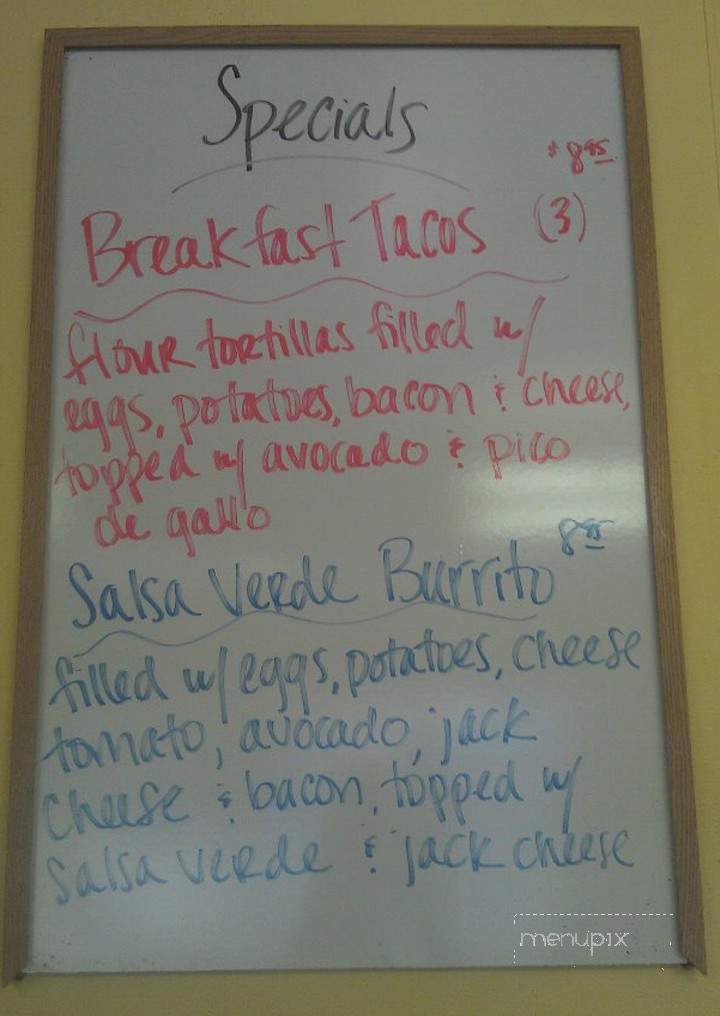 Specials
$8.95
Breakfast Tacos (3)
flour tortillas filled w/
eggs, potatoes, bacon & cheese,
topped w/ avocado & pico
de gallo
8.95
Salsa Verde Burrito
filled w/ eggs, potatoes, cheese
tomato, avocado, jack
cheese & bacon, topped w/
salsa verde & jack cheese
menupix